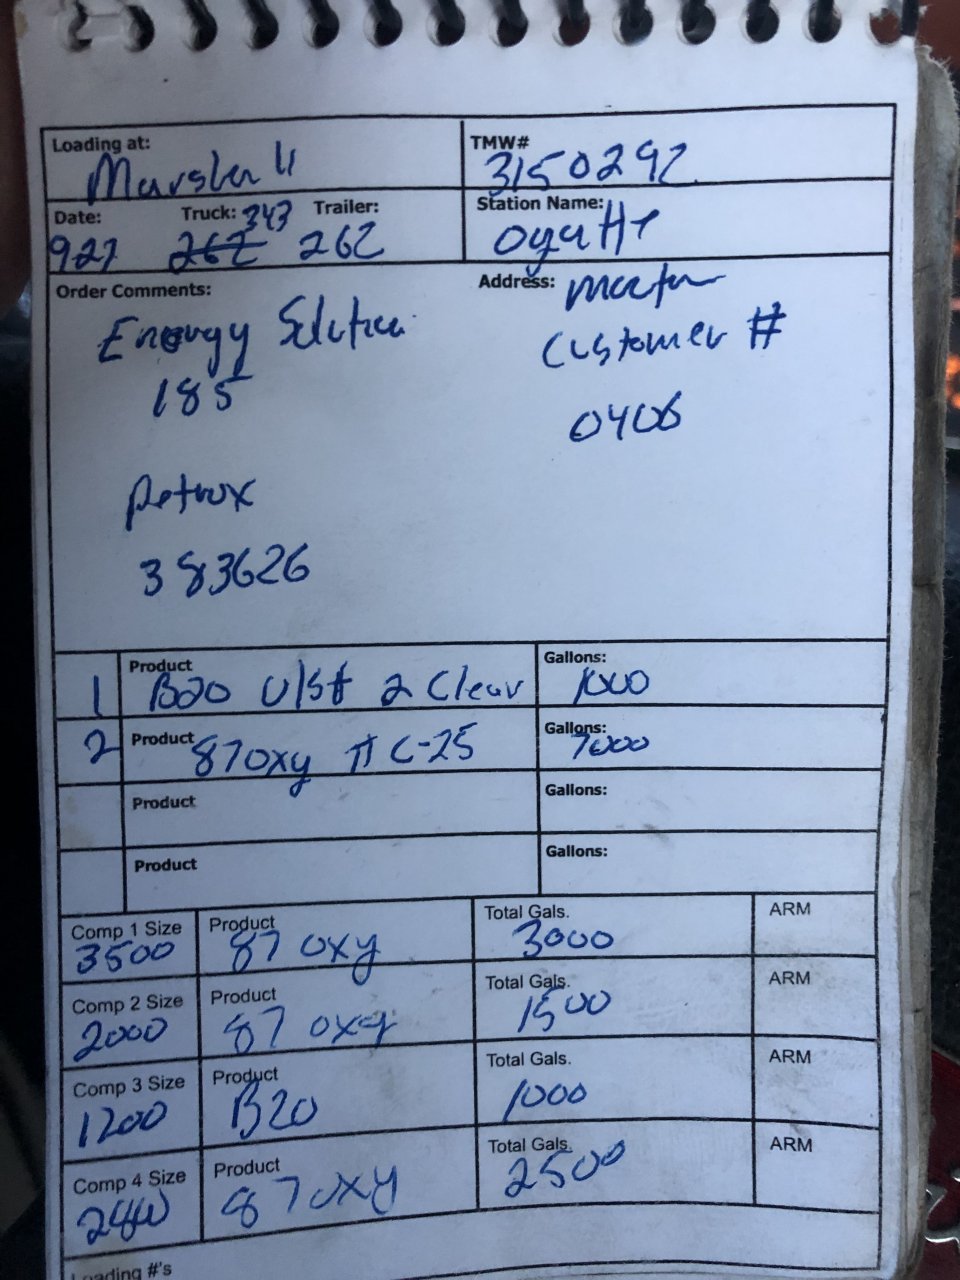 Loading at:
Marshall
TMW#
3150292
Date: Truck: Trailer:
927 262 343 262
Station Name:
Oyatte
Order Comments:
Energy Solution
185
Petrox
383626
Address:
Customer #
0406
1 Product B20 Ulsd 2 Clear Gallons: 1000
2 Product 87 oxy C-25 Gallons: 7000
Product Gallons:
Product Gallons:
Comp 1 Size Product Total Gals. ARM
3500 87 oxy 3000
Comp 2 Size Product Total Gals. ARM
2000 87 oxy 1500
Comp 3 Size Product Total Gals. ARM
1200 B20 1000
Comp 4 Size Product Total Gals. ARM
2800 87 oxy 2500
Loading #'s